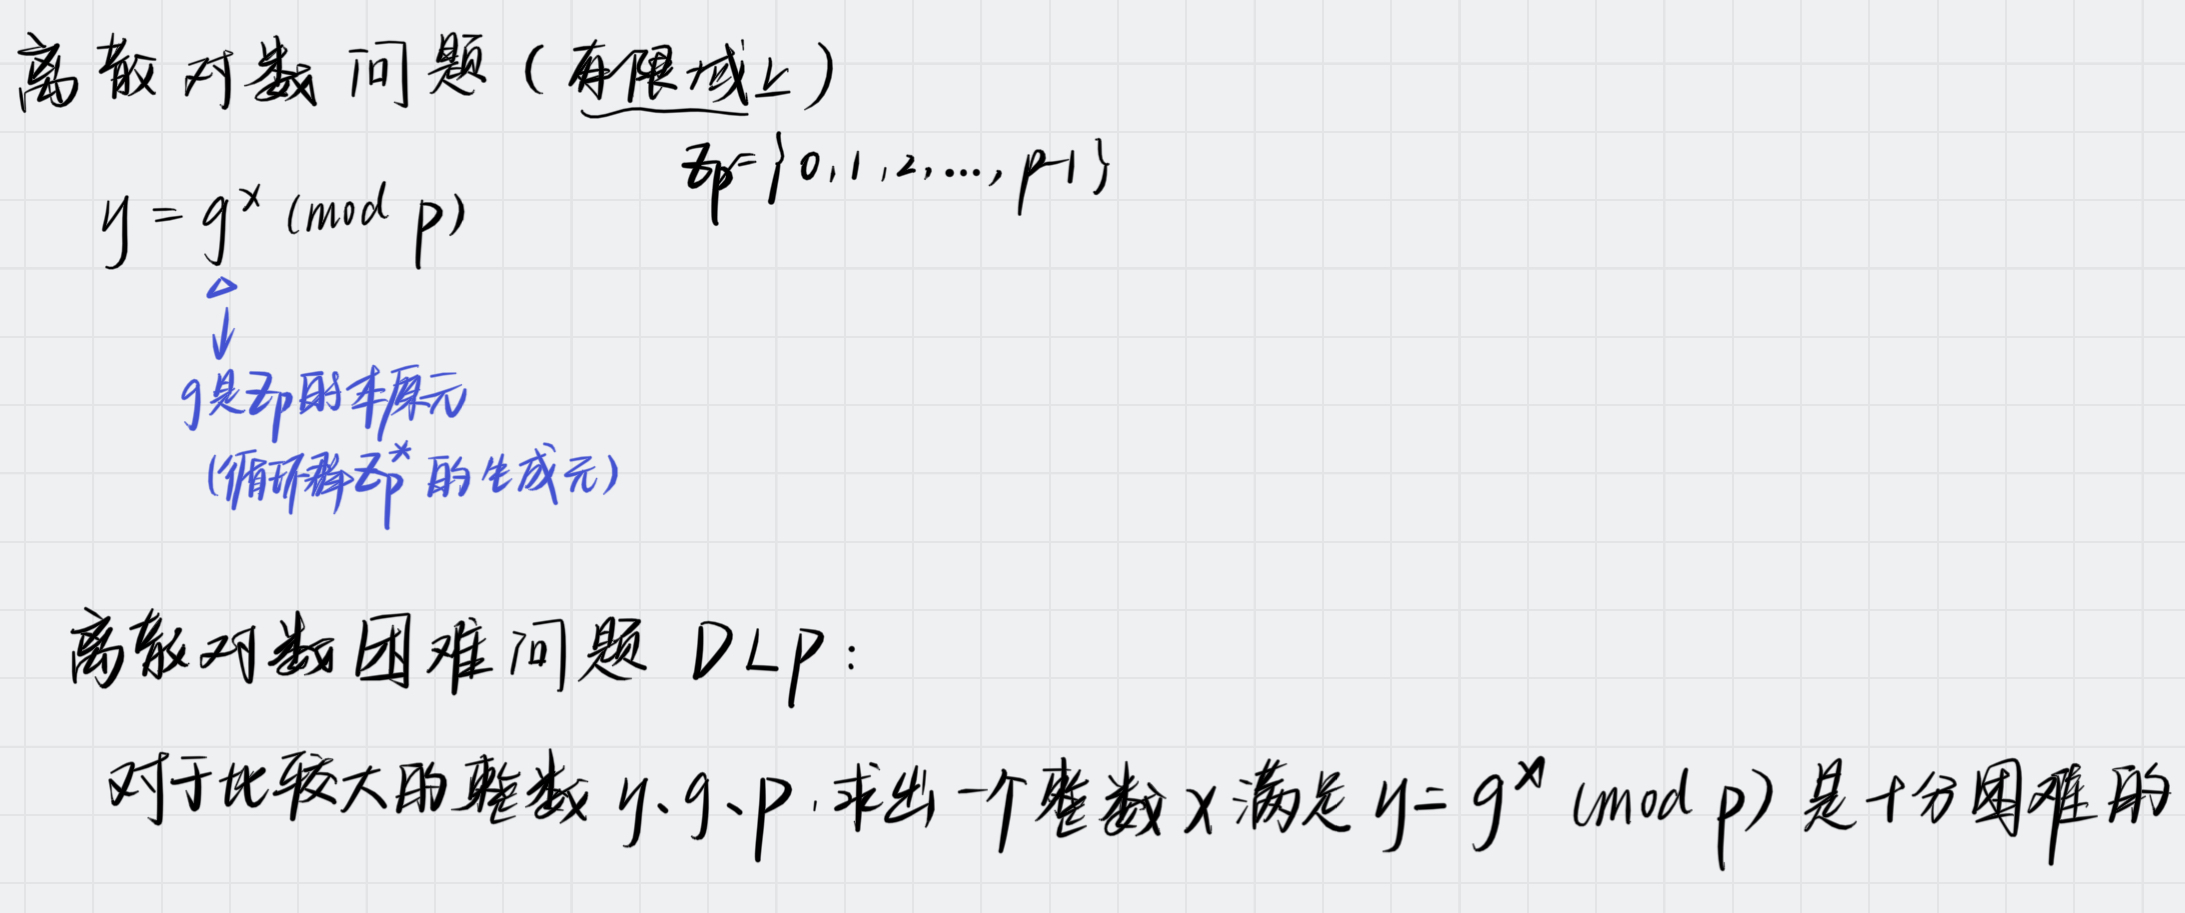 离散对数问题(有限域上)
Zp={0,1,2,...,p-1}
y = g^x (mod p)
g是Zp的本原元
(循环群Zp*的生成元)
离散对数困难问题 DLP:
对于比较大的整数 y、g、p,求出一个整数x满足 y= g^x (mod p) 是十分困难的